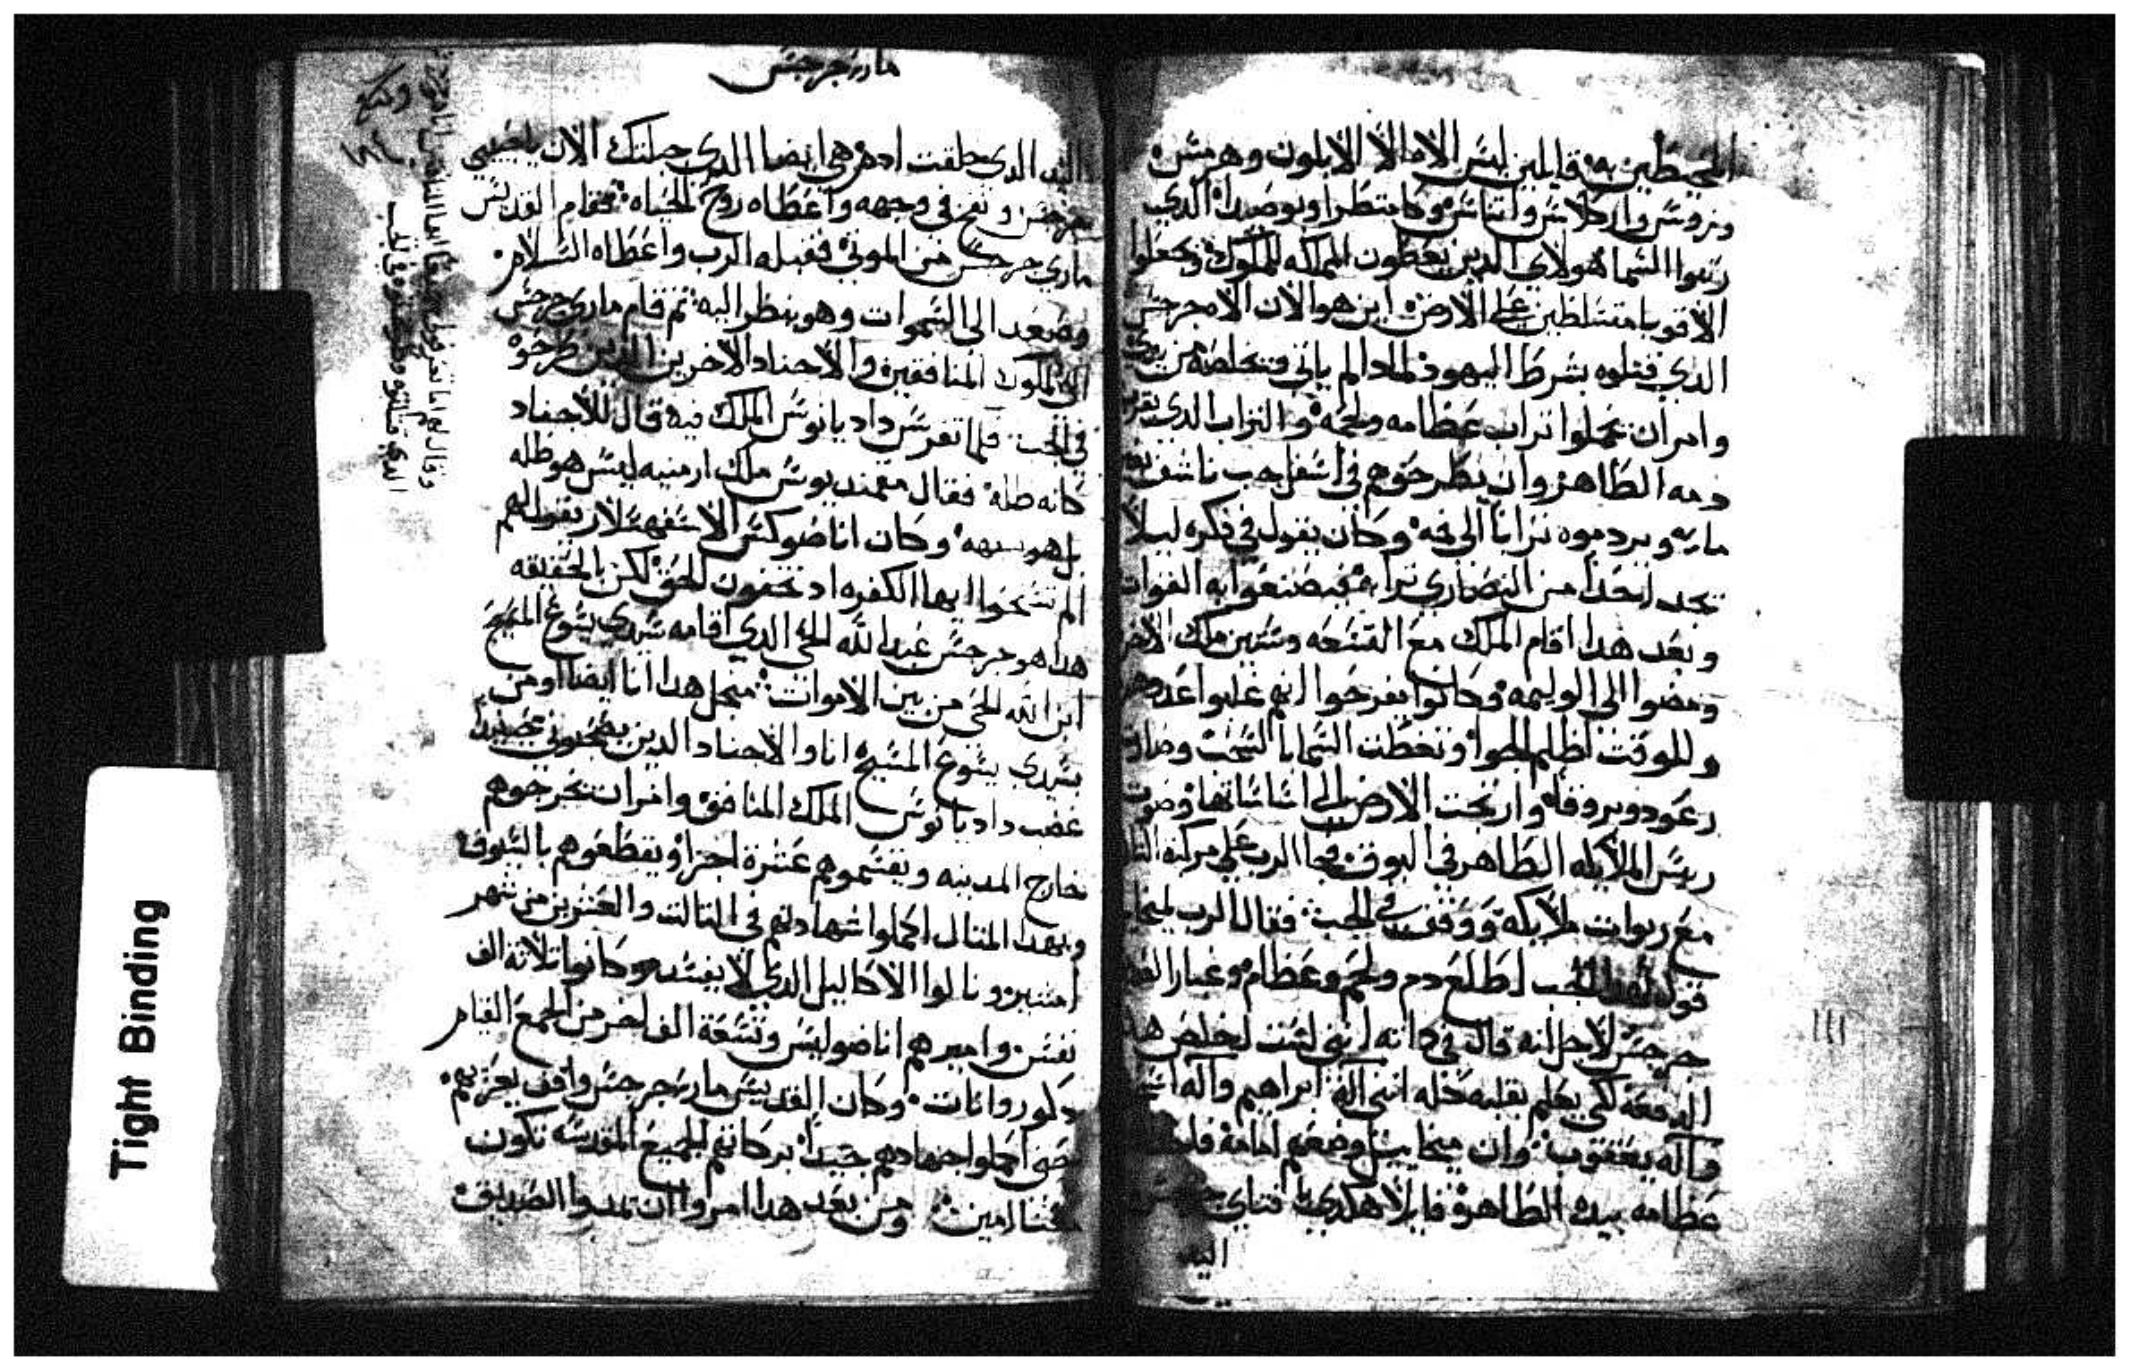 المحيطين به قايلين ليس الاها الا الابلون وهرمس
وزوس واركلاس واتناس وكامنطرا وبوصيدا الذي
ربنوا السما هولاي الدين يعطون المملكه للملوك ويجعلوا
الاقويا متسلطين على الارض اين هو الان الاه جرجس
الدي قتلوه شرط اليهود لمادا لم ياتي فيخلصه من يدي
وامر ان يحملوا تراب عظامه ولحمه والتراب الدي
دمه الطاهر وان يطرحوهم في اسفل جب ناشف
مايه ويردموه ترابا الى فمه وكان يقول في فكره ليلا
تجد احدا من النصارى ترابه فيصنعوا به القوات
وبعد هدا اقام الملك مع التسعه وستين ملك الاخر
ومضوا الى الوليمه وكانوا يفرحوا انهم غلبوا عدوهم
وللوقت اظلم الجوا وتغطت السما بالسحب وصار
رعود وبروقا وارتجت الارض الى اساساتها وصوت
ريس الملايكه الطاهر في البوق فجا الرب على مركبة
مع ربوات ملايكه ووقف في الجب فقال الرب لميخا
قول لهدا الجب اطلع دم ولحم وعظام وغبار
جرجس لاجل انه قال في داته انني لست اخلص هده
الدفعة لكي يعلم بقلبه كله انني اله ابراهيم واله
واله يعقوب وان ميخاييل وضعهم امامه
عظامه بيده الطاهرة قايلا هكدي يا فتاي
اليد
ماري جرجس
اليد الدي خلقت ادم هي ايضا الدي جبلتك الان يا حبيبي
جرجس ونفخ في وجهه واعطاه روح الحياه فقام القديس
ماري جرجس من الموتى فقبله الرب واعطاه السلام
وصعد الى السموات وهو ينظر اليه ثم قام ماري جرجس
الى الملوك المنافقين والاجناد الاخرين الدين طرحوه
في الجب فلما تفرس داديانوس الملك فيه قال للاجناد
كانه ظله فقال مغمنديوس ملك ارمنيه ليس هو ظله
بل هو شبهه وكان اناضوكس الاسفهسلار يقول لهم
الم تستحوا ايها الكفره اد تخفون الحق لكن بالحقيقه
هدا هو جرجس عبد الله الحي الدي اقامه سيدي يسوع المسيح
ابن الله الحي من بين الاموات منجل هدا انا ايضا اومن
بسيدي يسوع المسيح انا والاجناد الدين يصحبوني
غضب داديانوس الملك المنافق وامر ان تخرجوهم
خارج المدينه ويقسموهم عشرة اجزا ويقطعوهم بالسيوف
وبهدا المتال اكملوا شهادتهم في التالت والعشرين من شهر
امشير ونالوا الاكاليل الدي لا يفسد وكانوا تلاتة الف
نفس واميرهم اناضوليس وتسعة الف اخر من الجمع القيام
وكان القديس ماري جرجس واقف يعزيهم
حتى اكملوا اجهادهم جيدا بركاتهم الجميع المقدسه تكون
معنا امين ومن بعد هدا امروا ان يمدوا الصديق
Tight Binding